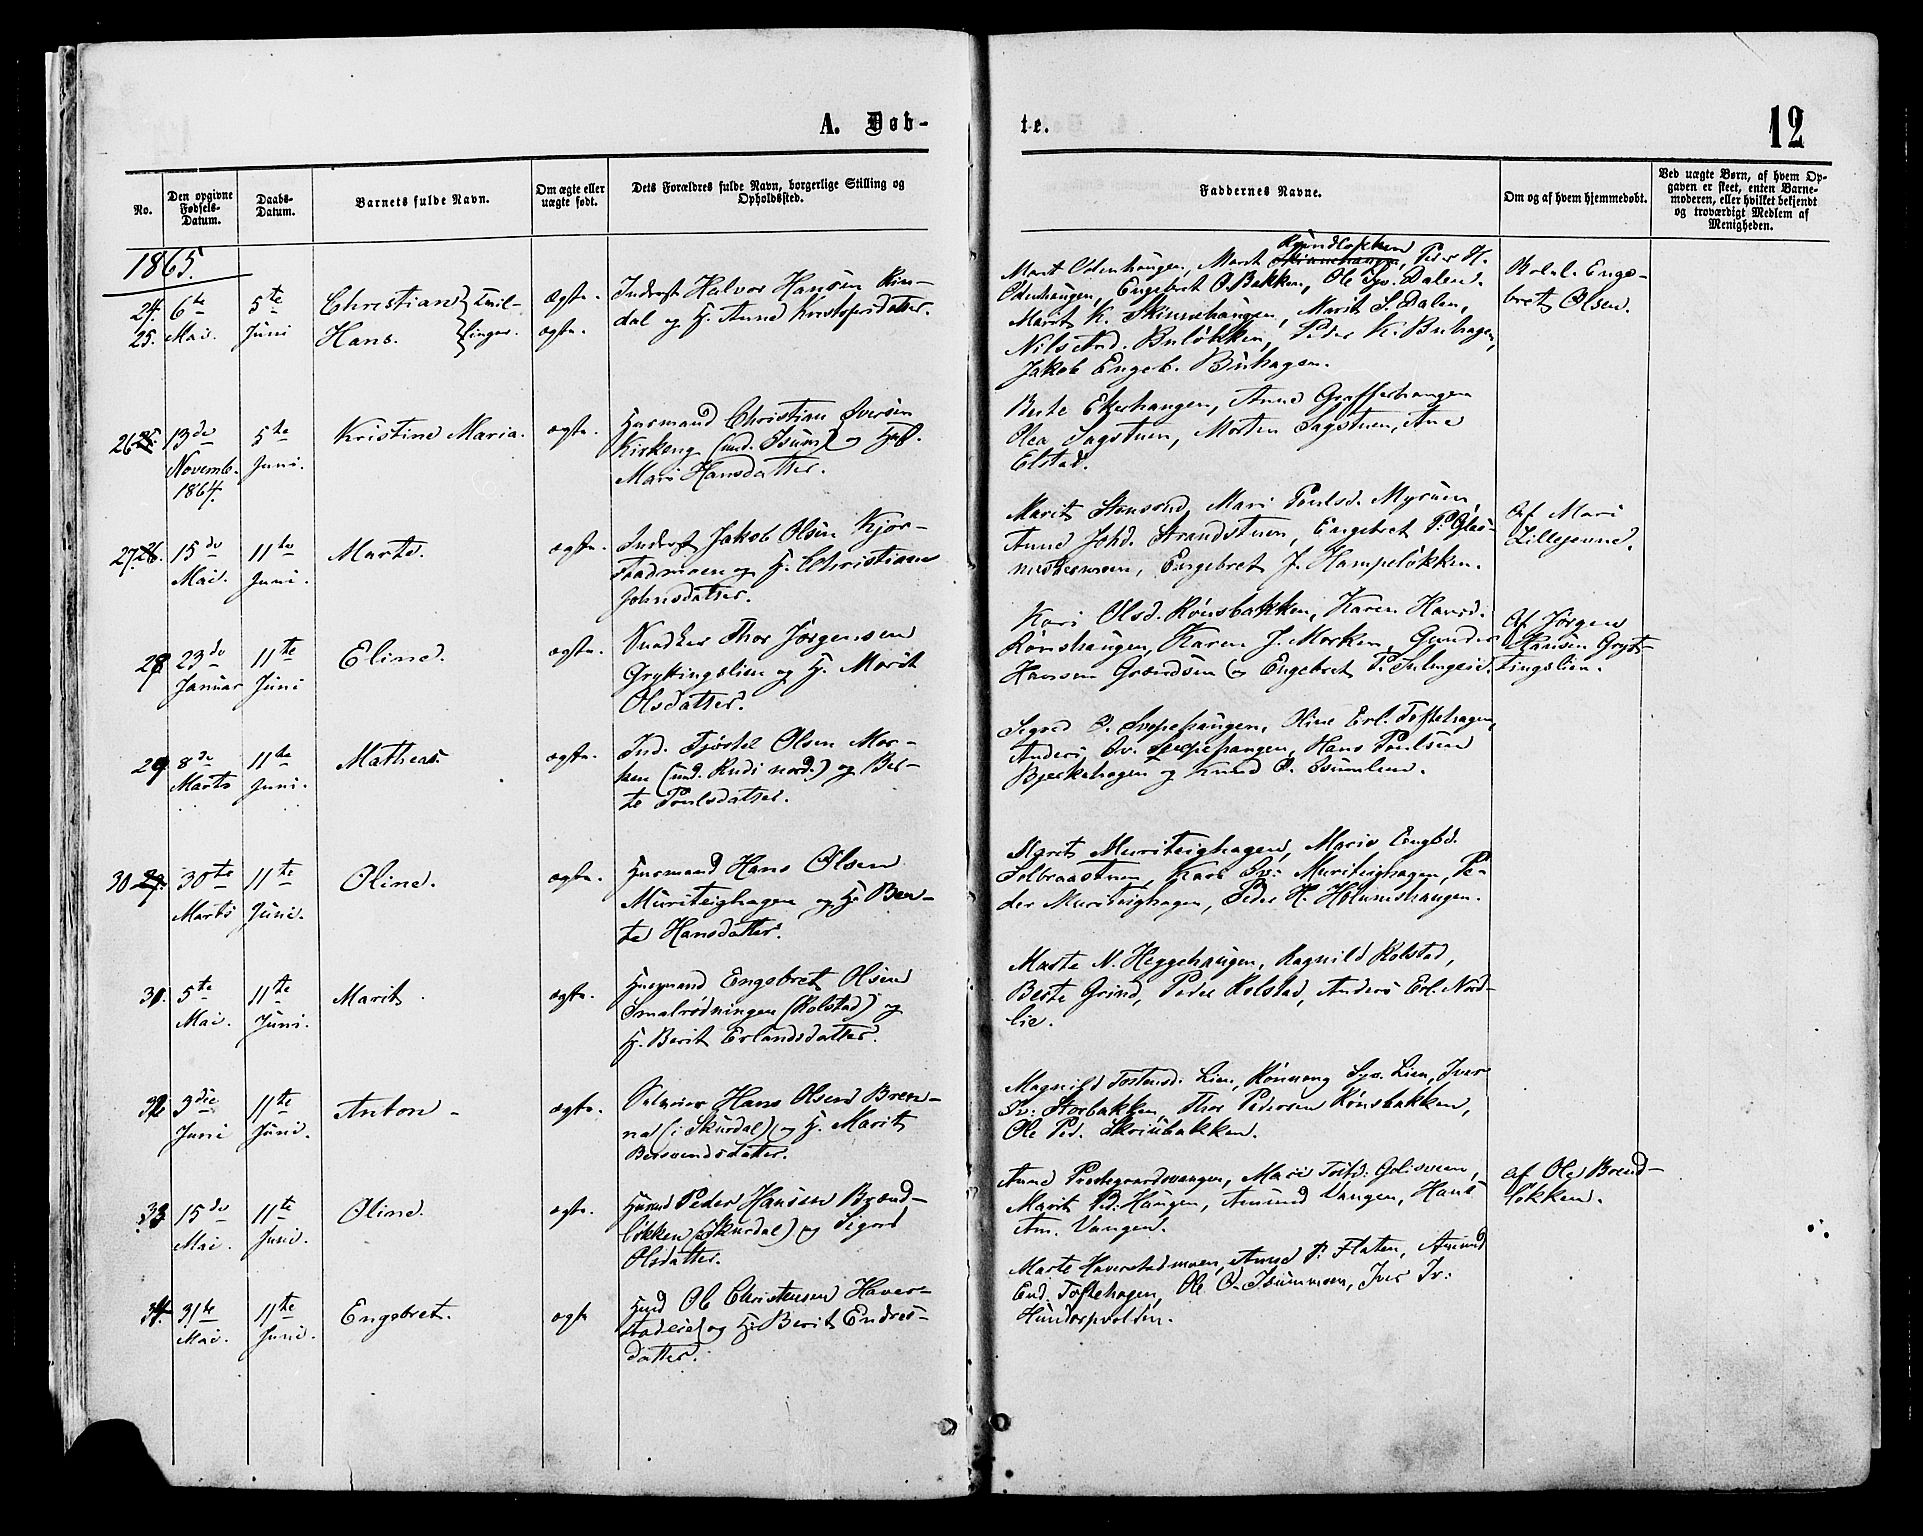 A. Døb-
te.
12
No.
Den opgivne Fødsels-Datum.
Daabs-Datum.
Barnets fulde Navn.
Om ægte eller uægte født.
Dets Forældres fulde Navn, borgerlige Stilling og Opholdssted.
Faddernes Navne.
Om og af hvem hjemmedøbt.
Ved uægte Børn, af hvem Opgaven er skeet, enten Barnemoderen, eller hvilket bekjendt og troværdigt Medlem af Menigheden.
1865.
24. 6te 5te Christian } Tvil- ægte.
25. Mai. Juni Hans. } linger. ægte.
Inderst Halvor Hansen Rin-
dal og H. Anne Kristofersdatter.
Marit Odenhaugen, Marit Rundløkken, Peder H.
Odenhaugen, Engebret O. Bakken, Ole Syv. Dalen.
Marit K. Skimnehaugen, Marit S. Dalen,
Nils And. Buløkken, Peder K. Buhagen,
Jakob Engeb. Buhagen.
Enge-
bret Olsen.
26 25. 13de 5te Kristine Maria. ægte.
Novemb. Juni.
1864.
Husmand Christian Iversen
Kirkeng (und. Isum) og
Mari Hansdatter.
Berte Ekerhaugen, Anne Grafferhaugen
Olea Sagstuen, Morten Sagstuen, Ane
Elstad.
27. 26. 15de 11te Marte. ægte.
Mai. Juni.
Inderst Jakob Olsen Kjor-
stadmoen og H. Christiane
Johnsdatter.
Marit Stensrud, Mari Poulsd. Myruen,
Anne Johd. Strandstuen, Engebret P.
Engebret J. Hampeløkken.
Af Mari
Lillejonne.
28 23de 11te Eline. ægte.
Januar Juni
Snedker Thor Jørgensen
Gryttingslien og H. Marit
Olsdatter.
Kari Olsd. Rønsbakken, Karen Hansd.
Rønshaugen, Karen J. Morken, Gunder
Hansen og Engebret P.
Af Jørgen
Hansen Gryt-
tingslien.
29 8de 11te Mathea. ægte.
Marts Juni.
Ind. Tjøstel Olsen Mor-
ken (und. Rudi nord.) og Ber-
te Poulsdatter.
Sigrid O. Oline Erl. Toftehagen,
Anders Iv. Hans Poulsen
Bjerkehagen og Knud O. Isumlien.
30 29. 30te 11te Oline. ægte.
Marts Juni.
Husmand Hans Olsen
Muriteighagen og H. Ber-
te Hansdatter.
Marit Muriteighagen, Marie Engbd.
Solbraastuen, Kari Iv. Muriteighagen, Pe-
der Muriteighagen, Peder H. Holumshaugen.
31. 5te 11te Marit. ægte.
Mai. Juni.
Husmand Engebret Olsen
Smalrødningen (Kolstad) og
H. Berit Erlandsdatter.
Marte N. Heggehaugen, Ragnild Kolstad,
Berte Grind, Peder Kolstad, Anders Erl. Nord-
lie.
32 3die 11te Anton - ægte.
Juni Juni.
Selveier Hans Olsen Bren-
na (i Skurdal) og H. Marit
Bersvendsdatter.
Magnild Tostensd. Lien, Rønnaug Syv. Lien, Iver
Iv. Storbakken, Thor Pedersen Rønsbakken,
Ole Ped. Skriubakken.
33 15de 11te Oline. ægte.
Mai. Juni.
Husmd Peder Hansen Brænd-
løkken (i Skurdal) og Sigrid
Olsdatter.
Anne Prestegaardsvangen, Mari Tostd.
Marit P. Haugen, Amund Vangen, Hans
Am. Vangen.
af Ole Brend-
løkken.
34. 31te 11te Engebret. ægte
Mai. Juni.
Husmd Ole Christensen Haver-
stadeie og H. Berit Endres-
datter.
Marte Haverstadmoen, Anne P. Flaten, Amund
End. Toftehagen, Ole O. Isummoen, Iver Iv.
Hundorpvolden.